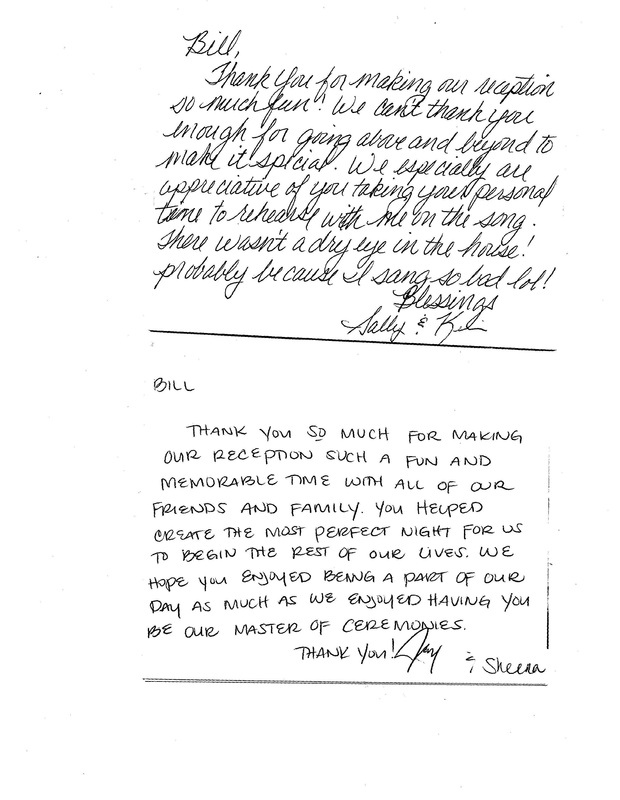 Bill,
Thank you for making our reception
so much fun! We can't thank you
enough for going above and beyond to
make it special. We especially are
appreciative of you taking your personal
time to rehearse with me on the song.
There wasn't a dry eye in the house!
probably because I sang so bad lol!
Blessings
Sally &
BILL
THANK YOU SO MUCH FOR MAKING
OUR RECEPTION SUCH A FUN AND
MEMORABLE TIME WITH ALL OF OUR
FRIENDS AND FAMILY. YOU HELPED
CREATE THE MOST PERFECT NIGHT FOR US
TO BEGIN THE REST OF OUR LIVES. WE
HOPE YOU ENJOYED BEING A PART OF OUR
DAY AS MUCH AS WE ENJOYED HAVING YOU
BE OUR MASTER OF CEREMONIES.
THANK YOU! Jay & Sheena